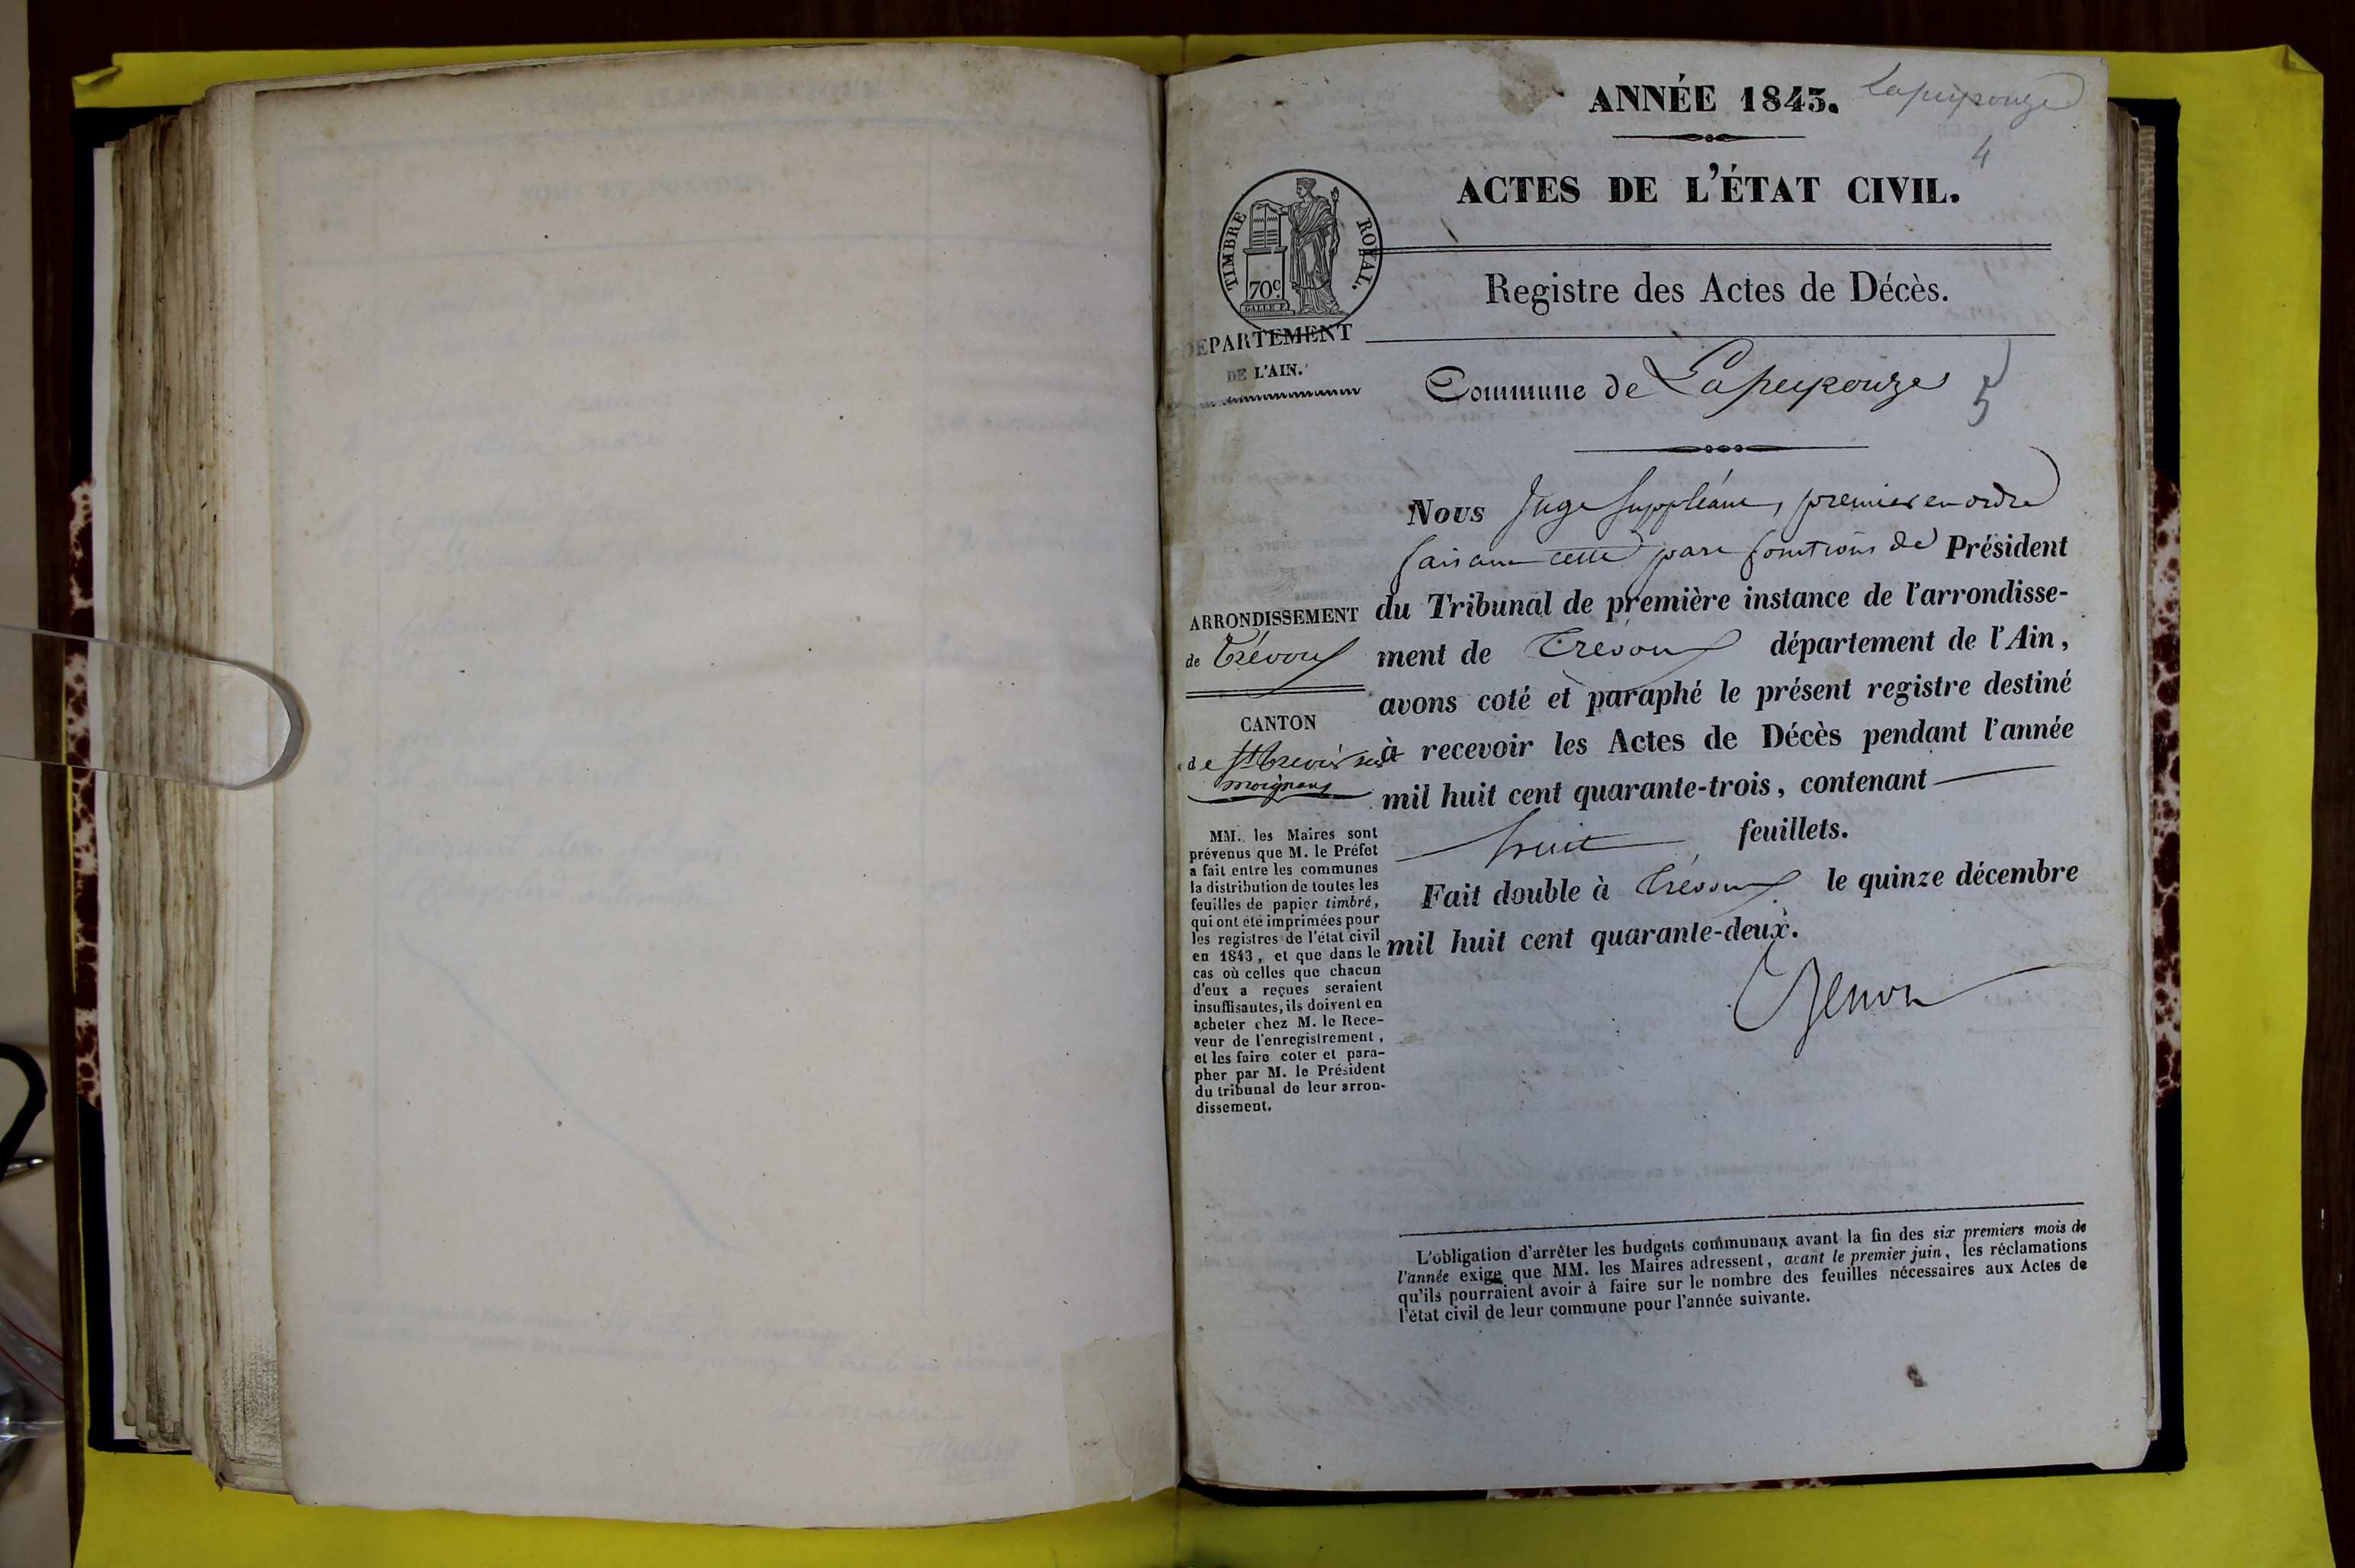 ANNÉE 1843.
Lapeyrouze
4
ACTES DE L'ÉTAT CIVIL.
TIMBRE ROYAL.
70c
Registre des Actes de Décès.
DEPARTEMENT
DE L'AIN.
Commune de Lapeyrouze
5
Nous Juge suppléant, premier en ordre
faisant cette part fonctions de Président
ARRONDISSEMENT
de Trévoux
du Tribunal de première instance de l'arrondisse-
ment de Trévoux département de l'Ain,
avons coté et paraphé le présent registre destiné
CANTON
de St Trivier sur
moignans
à recevoir les Actes de Décès pendant l'année
mil huit cent quarante-trois, contenant
huit feuillets.
Fait double à Trévoux le quinze décembre
mil huit cent quarante-deux.
MM. les Maires sont
prévenus que M. le Préfet
a fait entre les communes
la distribution de toutes les
feuilles de papier timbré,
qui ont été imprimées pour
les registres de l'état civil
en 1843, et que dans le
cas où celles que chacun
d'eux a reçues seraient
insuffisantes, ils doivent en
acheter chez M. le Rece-
veur de l'enregistrement,
et les faire coter et para-
pher par M. le Président
du tribunal de leur arron-
dissement.
L'obligation d'arrêter les budgets communaux avant la fin des six premiers mois de
l'année exige que MM. les Maires adressent, avant le premier juin, les réclamations
qu'ils pourraient avoir à faire sur le nombre des feuilles nécessaires aux Actes de
l'état civil de leur commune pour l'année suivante.